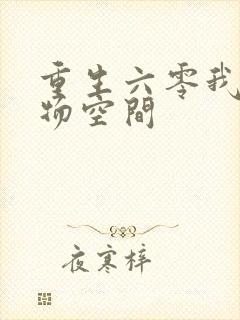 重生六零我
物空間
夜寒梓